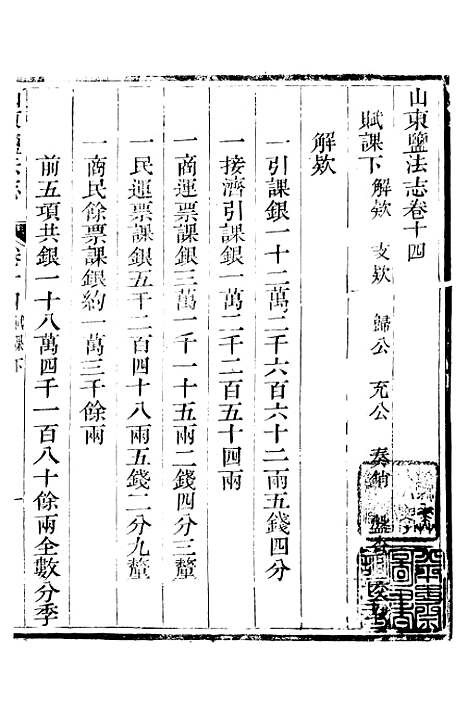 山東鹽法志卷十四
賦課下 解欵 支欵 歸公 充公 奏銷 盤查
解欵
一引課銀一十二萬二千六百六十二兩五錢四分
一接濟引課銀一萬二千二百五十四兩
一商運票課銀三萬一千一十五兩二錢四分三釐
一民運票課銀五千二百四十八兩五錢二分九釐
一商民餘票課銀約一萬三千餘兩
前五項共銀一十八萬四千一百八十餘兩全數分季
山東鹽法志 卷十四 賦課下 一